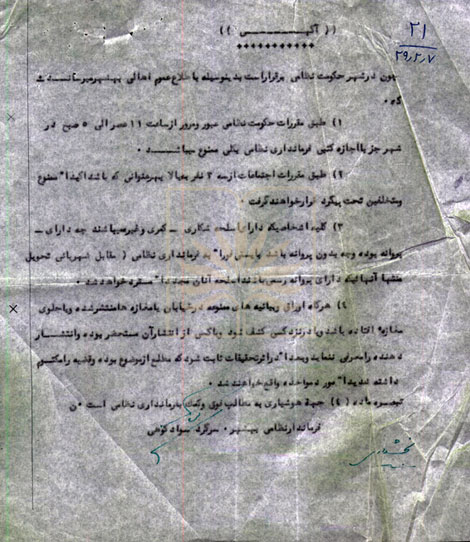 (( آگهــــی ))
۲۱
۲۹/۲/۷
چون در شهر حکومت نظامی برقرار است بدینوسیله باطلاع عموم اهالی بهشهر میرسانــد
که ۰
۱) طبق مقررات حکومت نظامی عبور و مرور از ساعت ۱۱ عصر الی ۵ صبح در
شهر جز با اجازه کتبی فرمانداری نظامی بکلی ممنوع میباشــد ۰
۲) طبق مقررات اجتماعات از سه ۳ نفر ببالا بهر عنوانی که باشد اکیدا" ممنوع
و متخلفین تحت پیگرد قرار خواهند گرفت ۰
۳) کلیه اشخاصیکه دارا اسلحه شکاری ـ کمری و غیره میباشند چه دارای ـ
پروانه بوده و چه بدون پروانه باشد بایستی فورا" به فرمانداری نظامی ( مقابل شهربانی تحویل
منتها آنهائیکه دارای پروانه رسمی باشند اسلحه آنان مجددا" مسترد خواهد شد ۰
۴) هرگاه اوراق بیانیه های ممنوعه در خیابان یا مغازه ها منتشر شده و یا جلوی
مغازه افتاده باشد و یا در نزد کسی کشف شود و یا کسی از انتشار آن مستحضر بوده و انتشــار
دهنده را معرفی ننماید و بعدا" در اثر تحقیقات ثابت شود که مطلع از موضوع بوده و قضیه را مکتوم
داشته شدیدا" مورد مواخذه واقع خواهند شد ۰
تبصره ماده (۴) جهة هوشیاری به مطالب فوق و کمک بفرمانداری نظامی است ۰ ن
فرماندار نظامی بهشهر ۰ سرگرد سواد کوهی